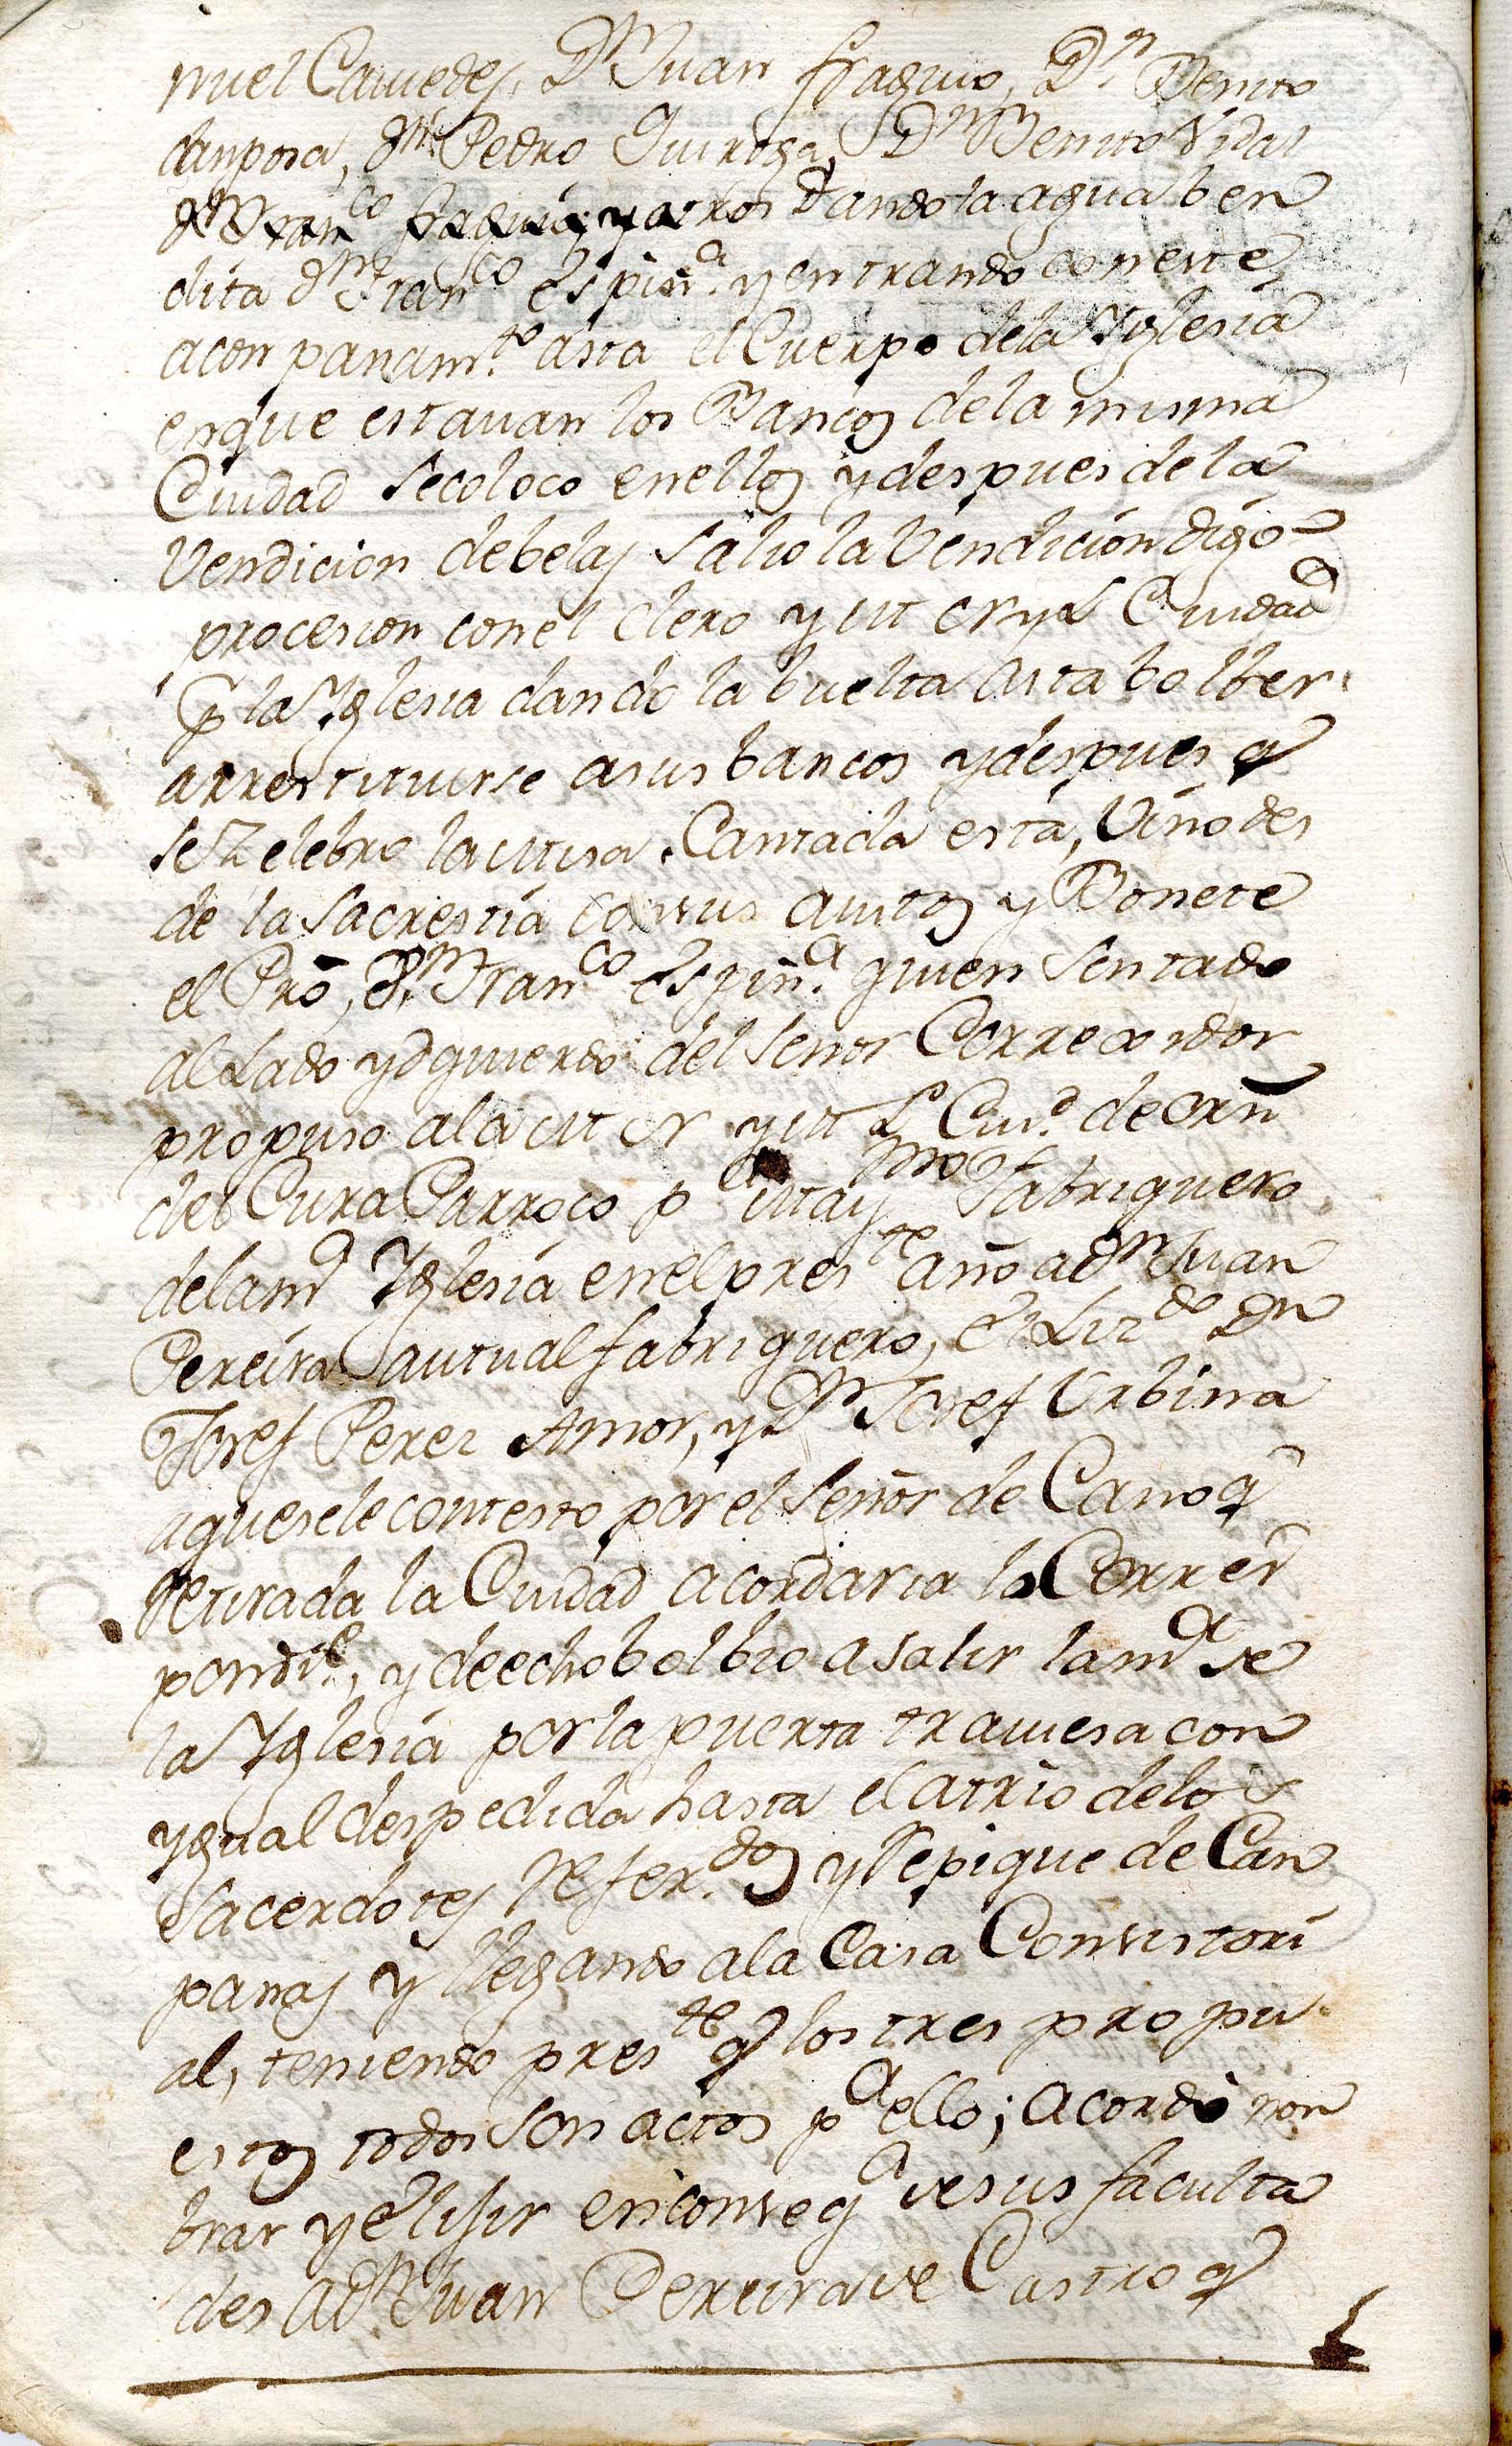 nuel Caviedes, Dn Juan fraguio, Dn Benito
canposa, dn Pedro Quiroga, Dn Benito Vidal
dn Franco fraguio, y otros dando la agua ben
dita dn Franco Espiña. y entrando con este
aconpanamto asta el Cuerpo dela Yglesia
enque estavan los Bancos de la misma
Ciudad se coloco enellos y despues de la
Vendicion de belas salio la Vendicion digo
procesion conel Clero y M N y L Ciudad
p la Yglesia dando la buelta asta bolber
arrestituirse asus bancos y despues q
se zelebro la Misa. Cantada esta, Vino des
de la Sacrestia con sus avitos y Bonete
el Pro, Dn Franco Espiña quien sentado
al Lado yzquierdo del Señor Correxidor
propuso ala M N y M L Ciud de orn
del Cura Parroco pa Maymo Fabriquero
dela ma Yglesia enel preste año a dn Juan
Pereira autual fabriquero, el Lizdo Dn
Josef Perez Amor, y Dn Josef Urbina
aquesele contesto por el Señor de Cano q
retirada la Ciudad acordaria lo Corres
pondte, y deecho bolbio a salir la ma de
la Yglesia por la puerta traviesa con
ygual despedida hasta el atrio delos
Sacerdotes referdos y repique de Can
panas y llegando ala Casa Consistori
al, teniendo preste q los tres propu
estos todos son actos pa ello; acordo non
brar y elijir en conseqa de sus faculta
des a dn Juan Pereira de Castro q